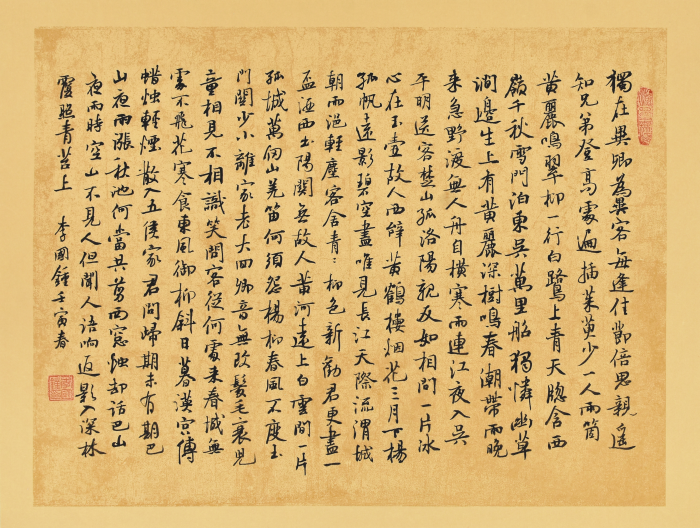 獨在異鄉為異客每逢佳節倍思親遥
知兄弟登高處遍插茱萸少一人兩箇
黄麗鳴翠柳一行白鷺上青天窓含西
嶺千秋雪門泊東吴萬里船獨憐幽草
澗邊生上有黄麗深樹鳴春潮帶雨晚
来急野渡無人舟自橫寒雨連江夜入吴
平明送客楚山孤洛陽親友如相問一片冰
心在玉壺故人西辭黄鶴樓烟花三月下楊
孤帆遠影碧空盡唯見長江天際流渭城
朝雨浥輕塵客舍青=柳色新勸君更盡一
盃酒西出陽關無故人黄河遠上白雲間一片
孤城萬仞山羌笛何須怨楊柳春風不度玉
門關少小離家老大回鄉音無改鬢毛衰兒
童相見不相識笑問客從何處来春城無
處不飛花寒食東風御柳斜日暮漢宫傳
蜡烛輕煙散入五侯家君問歸期未有期巴
山夜雨漲秋池何當共剪西窓烛却話巴山
夜雨時空山不見人但聞人語响返影入深林
復照青苔上 李國鍾壬寅春